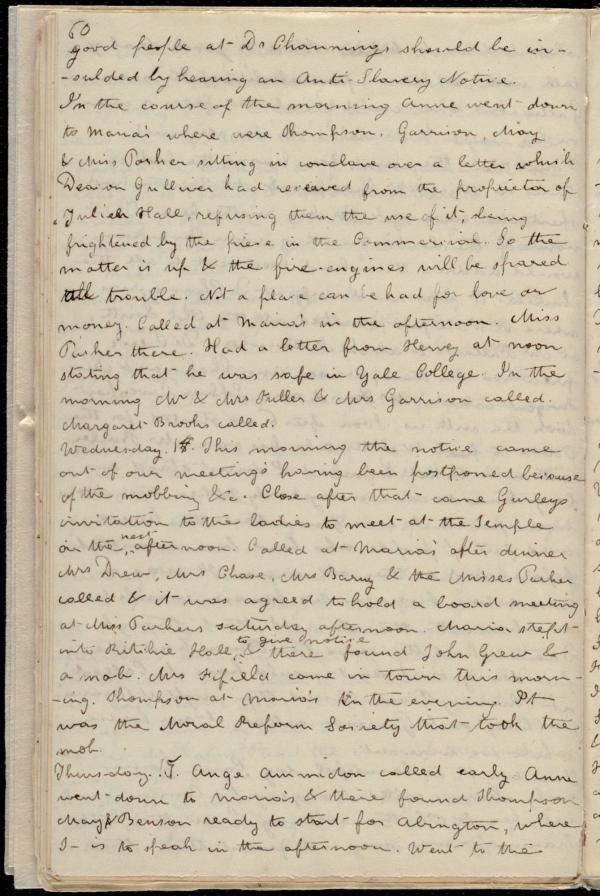 60
good people at Dr Channings should be in-
-sulded by hearing an Anti-Slavery Notice.
In the course of the morning Anne went down
to Maria's where were Thompson, Garrison, May
& Miss Parker sitting in conclave over a letter which
Deacon Gulliver had received from the proprietor of
Julien Hall, refusing them the use of it, being
frightened by the piece in the Commercial. So the
matter is up & the fire-engines will be spared
all trouble. Not a place can be had for love or
money. Called at Maria's in the afternoon. Miss
Parker there. Had a letter from Hervey at noon
stating that he was safe in Yale College. In the
morning Mr & Mrs Fuller & Mrs Garrison called.
Margaret Brooks called.
Wednesday. 14. This morning the notice came
out of our meeting's having been postponed because
of the mobbing &c. Close after that came Gurleys
invitation to the ladies to meet at the Temple
on the next afternoon. Called at Maria's after dinner
Mrs Drew, Mrs Chase, Mrs Barny & the Misses Parker
called & it was agreed to hold a board meeting
at Miss Parkers saturday afternoon. Maria step't
into Ritchie Hall, to give notice & there found John Grew &
a mob. Mrs Fifield came in town this morn-
-ing. Thompson at Maria's in the evening. It
was the Moral Reform Society that took the
mob.
Thursday. 15. Ange Ammidon called early Anne
went down to Maria's & there found Thompson
May & Benson ready to start for Abington, where
T- is to speak in the afternoon. Went to the